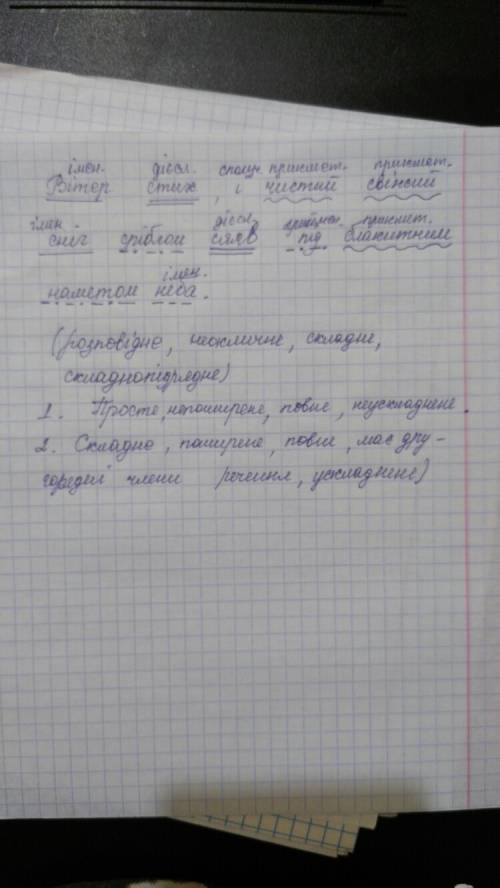 імен. дієсл. сполуч. прикмет. прикмет.
Вітер стих, і чистий свіжий
імен дієсл. прикмет.
сніг сріблом сяяв під блакитним
імен.
наметом неба.
(розповідне, неокличне, складне,
складнопідрядне)
1. Просте, непоширене, повне, неускладнене.
2. Складне, поширене, повне, має дру-
горядні члени речення, ускладнене)